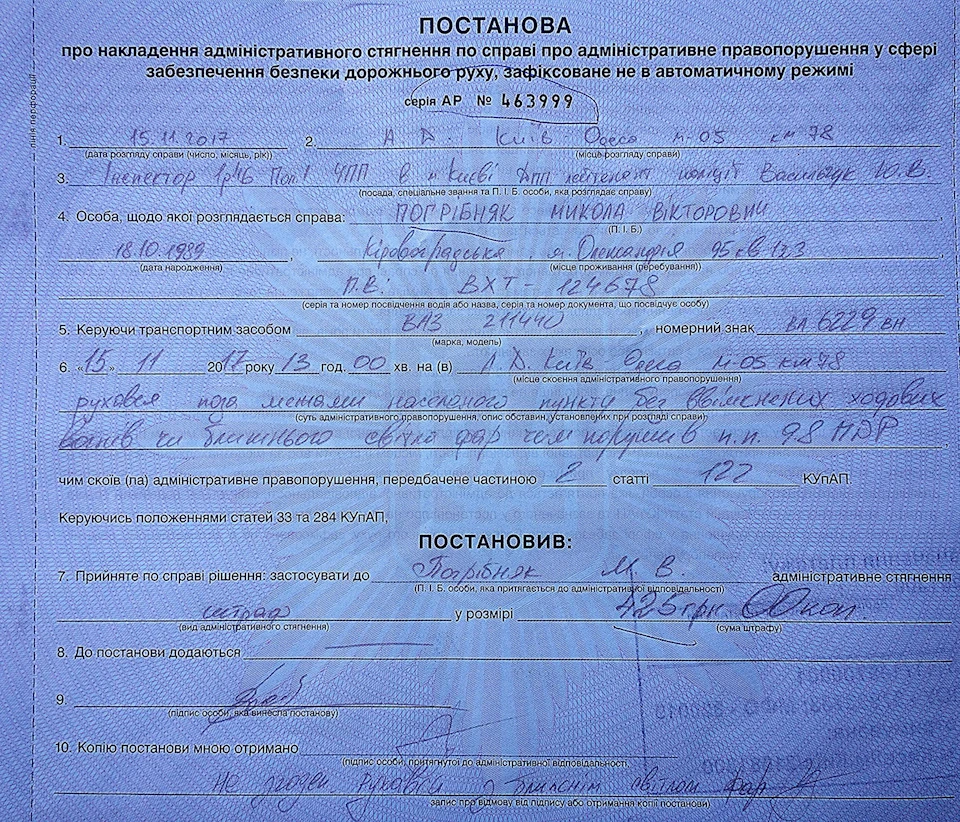 ПОСТАНОВА
про накладення адміністративного стягнення по справі про адміністративне правопорушення у сфері
забезпечення безпеки дорожнього руху, зафіксоване не в автоматичному режимі
серія АР № 463999
лінія перфорації
1. 15.11.2017 2. А Д. Київ Одеса м-05 км 78
(дата розгляду справи (число, місяць, рік)) (місце розгляду справи)
3. Інспектор в м Києві ДПП лейтенант поліції Васильчук Ю.В.
(посада, спеціальне звання та П. І. Б. особи, яка розглядає справу)
4. Особа, щодо якої розглядається справа: ПОГРІБНЯК МИКОЛА ВІКТОРОВИЧ
(П. І. Б.)
18.10.1989, Кіровоградська, м. Олександрія 95 кв
(дата народження) (місце проживання (перебування))
П.В: ВХТ - 124678
(серія та номер посвідчення водія або назва, серія та номер документа, що посвідчує особу)
5. Керуючи транспортним засобом ВАЗ 211440, номерний знак ВА 6229 ВН
(марка, модель)
6. «15» 11 2017 року 13 год. 00 хв. на (в) А Д Київ Одеса м-05 км 78
(місце скоєння адміністративного правопорушення)
рухався поза межами населеного пункту без ввімкнених ходових
(суть адміністративного правопорушення, опис обставин, установлених при розгляді справи)
вогнів чи ближнього світла фар чим порушив п.п. 9.8 ПДР
чим скоїв (ла) адміністративне правопорушення, передбачене частиною 2 статті 122 КУпАП.
Керуючись положеннями статей 33 та 284 КУпАП,
ПОСТАНОВИВ:
7. Прийняте по справі рішення: застосувати до Погрібняк М. В. адміністративне стягнення
(П. І. Б. особи, яка притягається до адміністративної відповідальності)
штраф у розмірі 425 грн 00 коп.
(вид адміністративного стягнення) (сума штрафу)
8. До постанови додаються
9.
(підпис особи, яка винесла постанову)
10. Копію постанови мною отримано
(підпис особи, притягнутої до адміністративної відповідальності,
не згоден рухався з ближнім світлом фар
запис про відмову від підпису або отримання копії постанови)